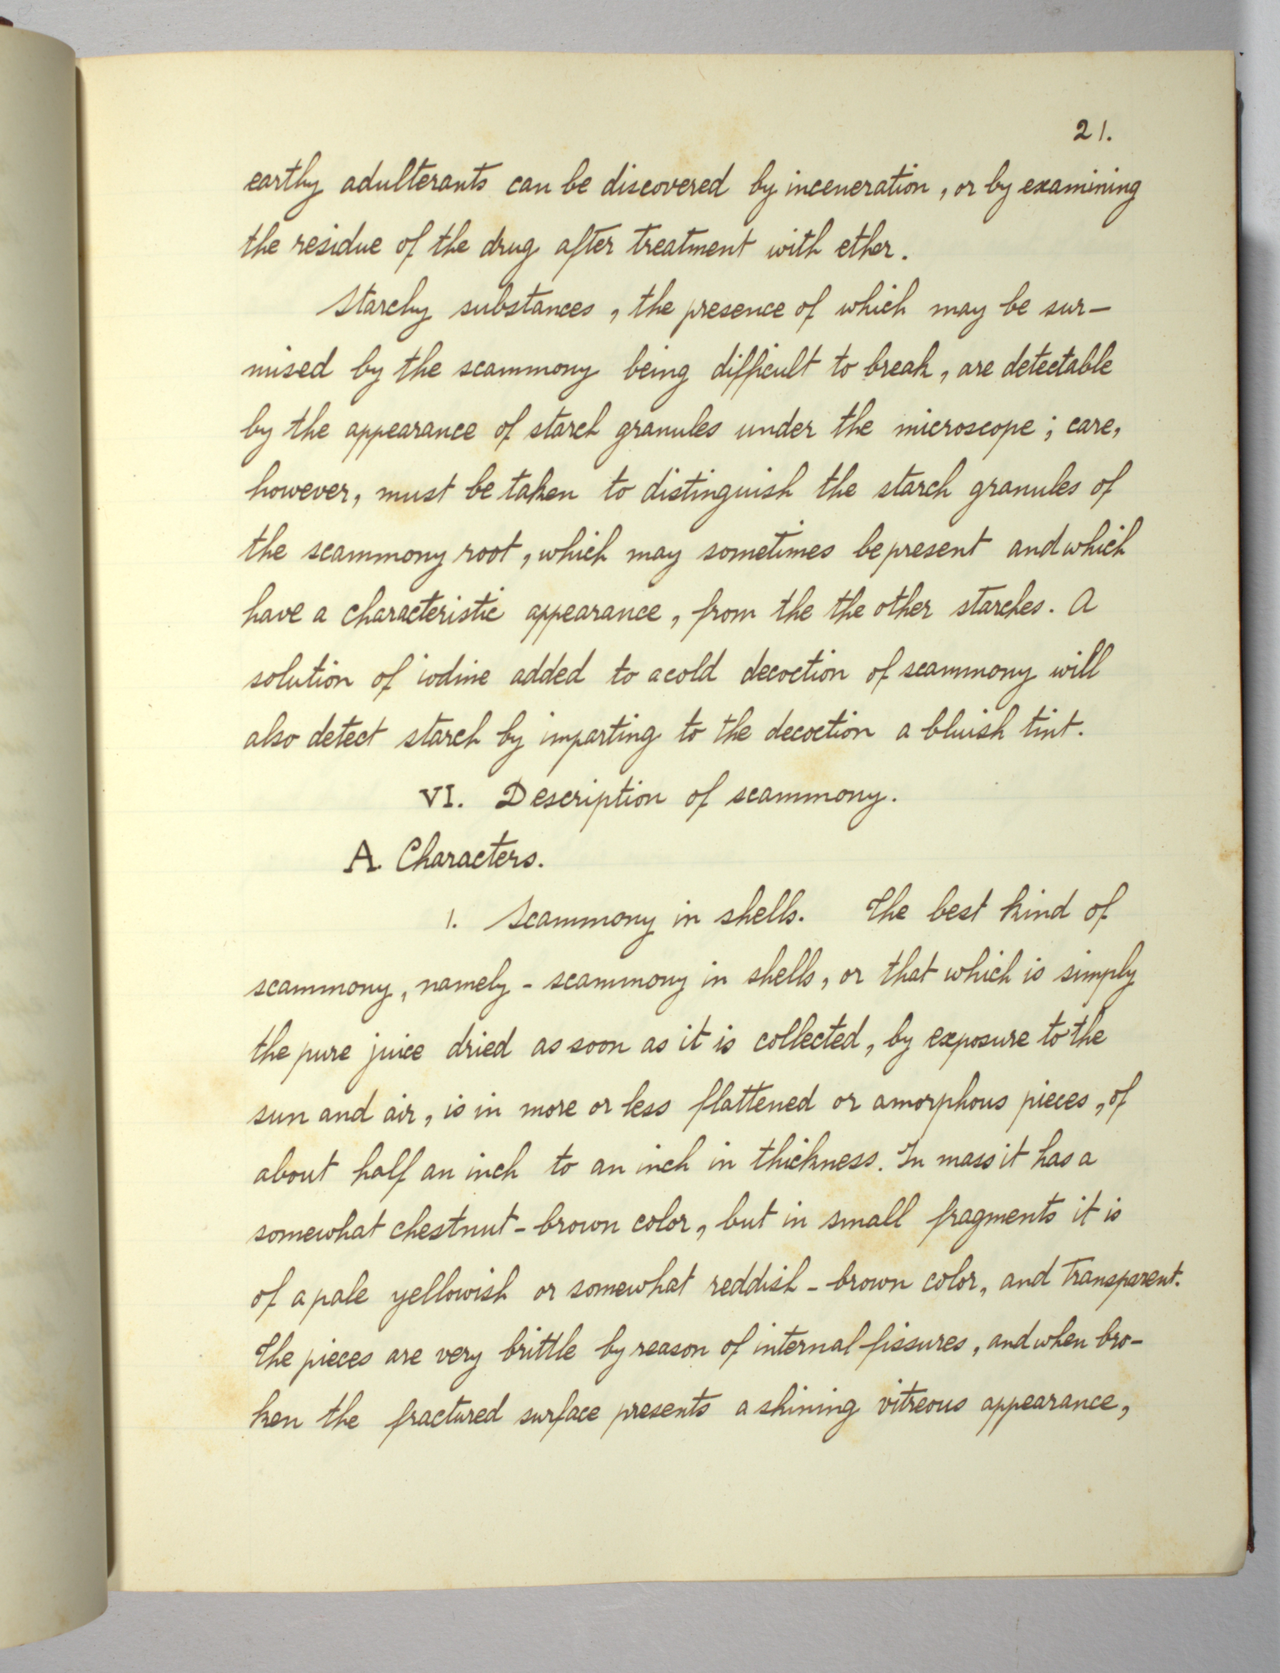 21.
earthy adulterants can be discovered by inceneration, or by examining
the residue of the drug after treatment with ether.
Starchy substances, the presence of which may be sur-
mised by the scammony being difficult to break, are detectable
by the appearance of starch granules under the microscope; care,
however, must be taken to distinguish the starch granules of
the scammony root, which may sometimes be present and which
have a characteristic appearance, from the the other starches. A
solution of iodine added to a cold decoction of scammony will
also detect starch by imparting to the decoction a bluish tint.
VI. Description of scammony.
A. Characters.
1. Scammony in shells. The best kind of
scammony, namely - scammony in shells, or that which is simply
the pure juice dried as soon as it is collected, by exposure to the
sun and air, is in more or less flattened or amorphous pieces, of
about half an inch to an inch in thickness. In mass it has a
somewhat chestnut-brown color, but in small fragments it is
of a pale yellowish or somewhat reddish-brown color, and transparent.
The pieces are very brittle by reason of internal fissures, and when bro-
ken the fractured surface presents a shining vitreous appearance,